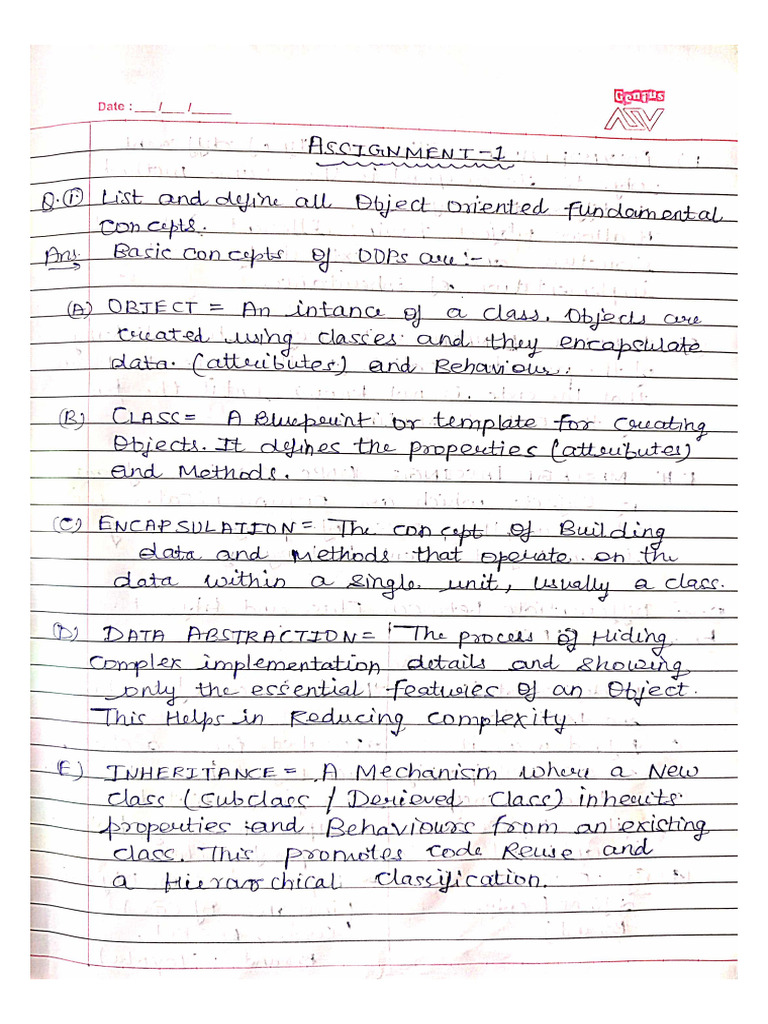 Date : ___ /___ /_____
Genius
ASSIGNMENT-1
Q.1) List and define all Object oriented fundamental
concepts.
Ans. Basic concepts of OOPs are :-
(A) OBJECT = An intance of a class. Objects are
created using classes and they encapsulate
data. (attributes) and Behaviour.
(B) CLASS = A Blueprint or template for creating
Objects. It defines the properties (attributes)
and Methods.
(C) ENCAPSULATION = The concept of Building
data and Methods that operate on the
data within a single unit, usually a class.
(D) DATA ABSTRACTION = The process of Hiding
complex implementation details and showing
only the essential features of an Object.
This Helps in Reducing complexity.
(E) INHERITANCE = A Mechanism where a New
class (subclass / Derieved Class) inherits
properties and Behaviours from an existing
class. This promotes code Reuse and
a Hierarchical classification.